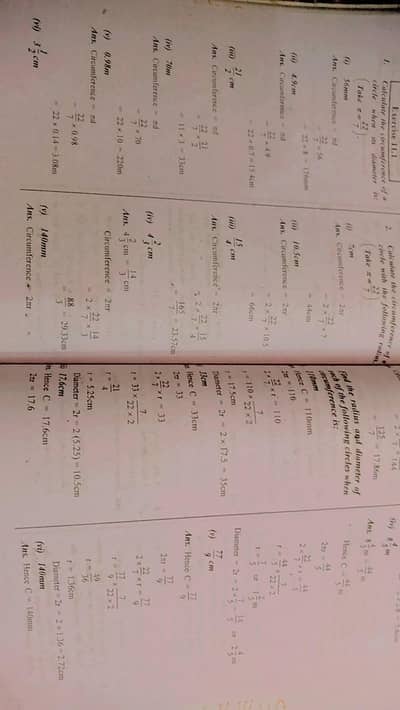 Exercise 11.1
1. Calculate the circumference of a
circle when its diameter is:
(Take π = 22/7)
(i) 56mm
Ans. Circumference = πd
= 22/7 × 56
= 22 × 8 = 176mm
(ii) 4.9cm
Ans. Circumference = πd
= 22/7 × 4.9
= 22 × 0.7 = 15.4cm
(iii) 21/2 cm
Ans. Circumference = πd
= 22/7 × 21/2
= 11 × 3 = 33cm
(iv) 70m
Ans. Circumference = πd
= 22/7 × 70
= 22 × 10 = 220m
(v) 0.98m
Ans. Circumference = πd
= 22/7 × 0.98
= 22 × 0.14 = 3.08m
(vi) 3 1/2 cm
2. Calculate the circumference of
circle with the following
(Take π = 22/7)
(i) 7cm
Ans. Circumference = 2πr
= 2 × 22/7 × 7
= 44cm
(ii) 10.5cm
Ans. Circumference = 2πr
= 2 × 22/7 × 10.5
= 66cm
(iii) 15/4 cm
Ans. Circumference = 2πr
= 2 × 22/7 × 15/4
= 165/7 = 23.57cm
(iv) 4 2/3 cm
Ans. 4 2/3 cm = 14/3 cm
Circumference = 2πr
= 2 × 22/7 × 14/3
= 88/3 = 29.33cm
(v) 140mm
Ans. Circumference = 2πr
= 125/7 = 17.86m
the radius and diameter of
of the following circles when
circumference is:
110mm
Hence C = 110mm
2πr = 110
2 × 22/7 × r = 110
r = 110 × 7/22 × 2
r = 17.5cm
Diameter = 2r = 2 × 17.5 = 35cm
33cm
Hence C = 33cm
2πr = 33
2 × 22/7 × r = 33
r = 33 × 7/22 × 2
r = 21/4
r = 5.25cm
Diameter = 2r = 2 (5.25) = 10.5cm
17.6cm
Hence C = 17.6cm
2πr = 17.6
(iv) 8 4/5 m
Ans. 8 4/5 m = 44/5 m
Hence C = 44/5 m
2πr = 44/5
2 × 22/7 × r = 44/5
r = 44/5 × 7/22 × 2
r = 7/5 or 1 2/5 m
Diameter = 2r = 2 × 7/5 = 14/5 or 2 4/5 m
(v) 77/9 cm
Ans. Hence C = 77/9
2πr = 77/9
2 × 22/7 × r = 77/9
r = 77/9 × 7/22 × 2
r = 49/36
r = 1.36cm
Diameter = 2r = 2 × 1.36 = 2.72cm
(vi) 140mm
Ans. Hence C = 140mm